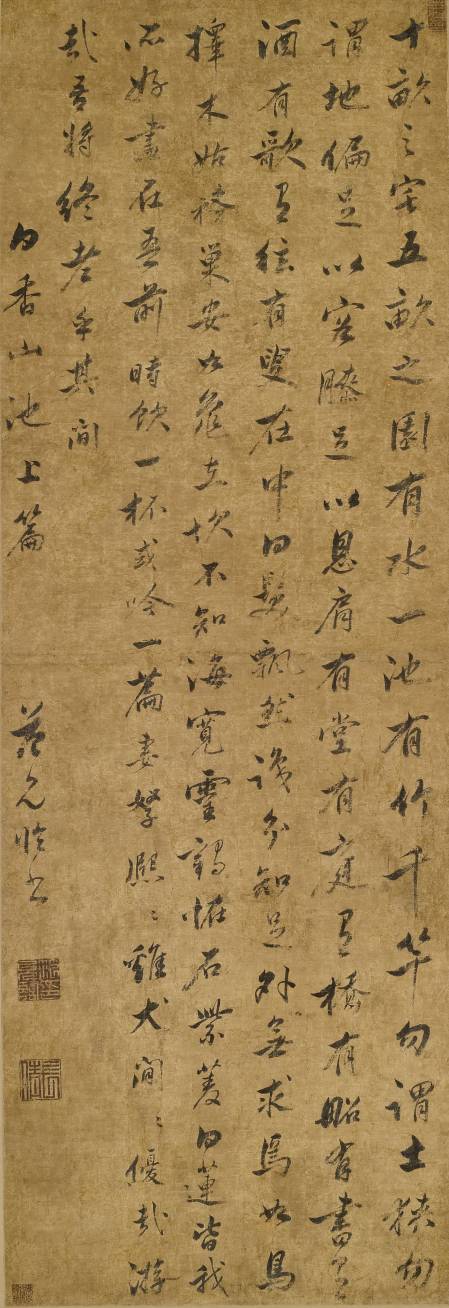 十畝之宅五畝之園有水一池有竹千竿勿謂土狹勿
謂地偏足以容膝足以息肩有堂有庭有橋有船有書有
酒有歌有絃有叟在中白髮飄然識分知足外無求焉如鳥
擇木姑務巢安如龜在坎不知海寬靈鶴恠石紫菱白蓮皆我
所好盡在吾前時飲一杯或吟一篇妻孥熙〻雞犬閒〻優哉游
哉吾將終老乎其間
白香山池上篇
范允臨書